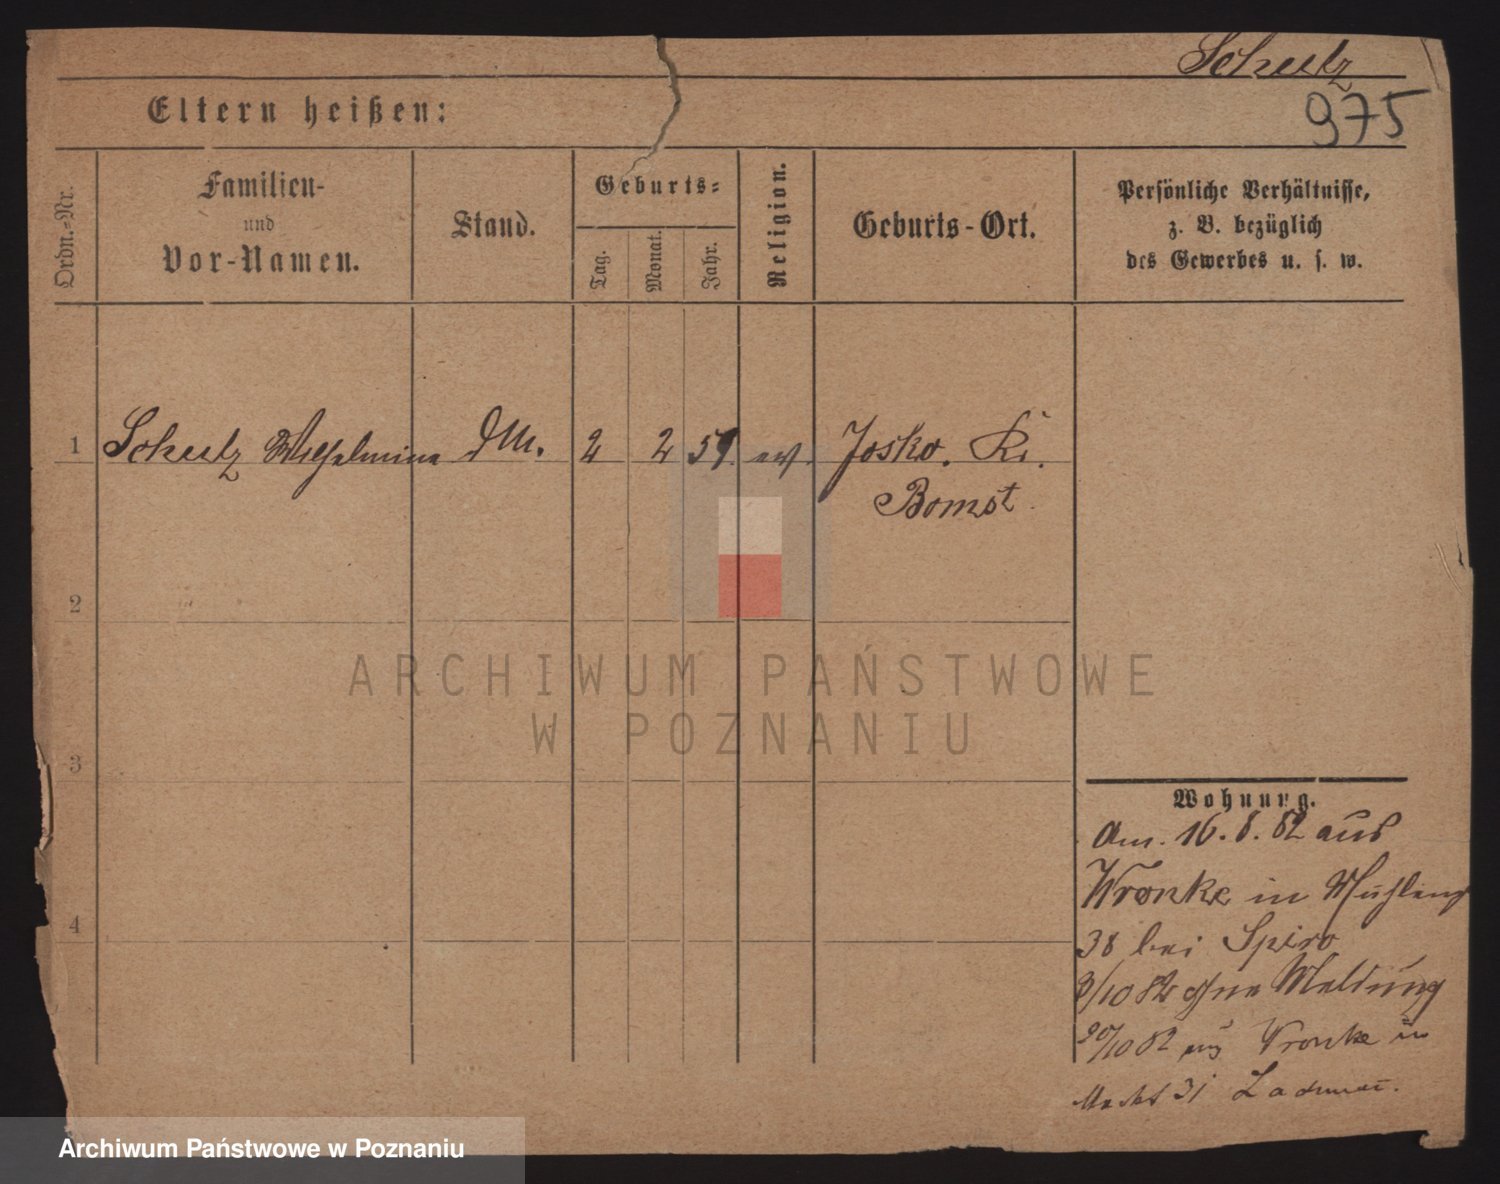 Schulz
975
Eltern heißen:
Ordn.-Nr.
Familien-
und
Vor-Namen.
Stand.
Geburts-
Tag.
Monat.
Jahr.
Religion.
Geburts-Ort.
Persönliche Verhältnisse,
z. B. bezüglich
des Gewerbes u. s. w.
1 Schulz Wilhelmine 2 2 59. ev. Josko. Kr.
Bomst
2
3
4
Wohnung.
Am. 16. 8. 82 aus
Wronke in
38 bei Spiro
3/10 82 ohne Meldung
20/10 82 aus Wronke in
Markt 31
ARCHIWUM PAŃSTWOWE
W POZNANIU
Archiwum Państwowe w Poznaniu